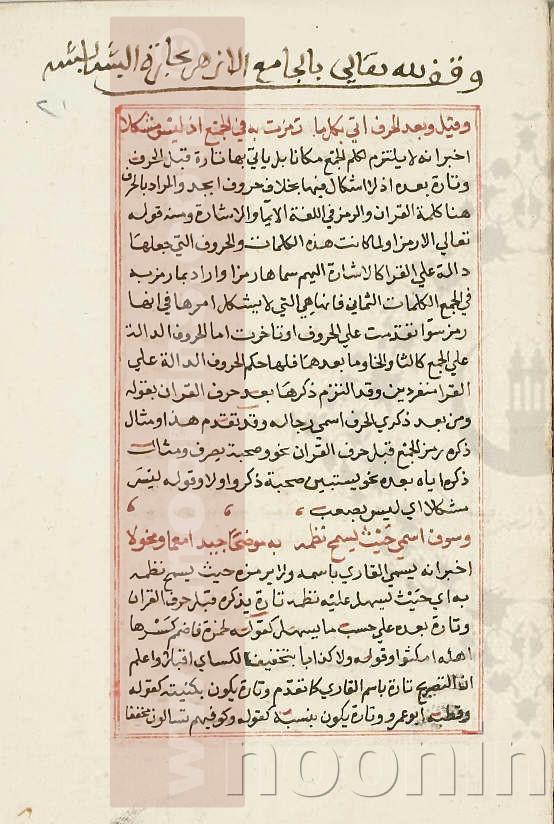 وقف لله تعالى بالجامع الازهر بحارة البشابشه
٢١
وقبل وبعد الحرف اتي بكل ما رمزت به في الجمع اذ ليس مشكلا
اخبر انه لا يلتزم لكلم الجمع مكانا بل ياتي بها تارة قبل الحرف
وتارة بعده اذ لا اشكال فيها بخلاف حروف ابجد والمراد بالحرف
هنا كلمة القران والرمز في اللغة الايما والاشارة ومنه قوله
تعالي الا رمزا ولما كانت هذه الكلمات والحروف التي جعلها
دالة علي القرا كالاشارة اليهم سماها رمزا واراد بما رمز به
في الجمع الكلمات الثماني فانها هي التي لا يشكل امرها في انها
رمز سوا تقدمت علي الحروف او تاخرت اما الحروف الدالة
علي الجمع كالثا والخا وما بعدهما فلها حكم الحروف الدالة علي
القرا منفردين وقد التزم ذكرها بعد حرف القران بقوله
ومن بعد ذكري الحرف اسمي رجاله وقد تقدم هذا ومثال
ذكره رمز الجمع قبل حرف القران نحو وصحبة يصرف ومثال
ذكره اياه بعده نحو يستبين صحبة ذكروا ولا وقوله ليس
مشكلا اي ليس بصعب
وسوف اسمي حيث يسمح نظمه به موضحا جيدا معما ومخولا
اخبر انه يسمي القاري باسمه ولا يرمزه حيث يسمح نظمه
به اي حيث يسهل عليه نظمه تارة يذكره قبل حرف القران
وتارة بعده علي حسب ما يسهل كقوله لحمزة فاضمم كسرها
اهله امكثوا وقوله ولا كذابا بتخفيف الكساي اقبلا واعلم
ان التصريح تارة باسم القاري كما تقدم وتارة يكون بكنيته كقوله
وقطبه ابو عمرو وتارة يكون بنسبه كقوله وكوفيهم تسالون مخففا
noonin